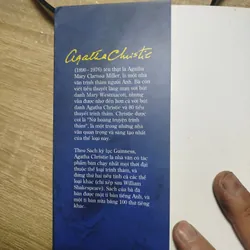 Agatha Christie
(1890 - 1976) tên thật là Agatha
Mary Clarissa Miller, là một nhà
văn trinh thám người Anh. Bà còn
viết tiểu thuyết lãng mạn với bút
danh Mary Westmacott, nhưng
vẫn được nhớ đến hơn cả với bút
danh Agatha Christie và 80 tiểu
thuyết trinh thám. Christie được
coi là "Nữ hoàng truyện trinh
thám", là một trong những nhà
văn quan trọng và sáng tạo nhất
của thể loại này.
Theo Sách kỷ lục Guinness,
Agatha Christie là nhà văn có tác
phẩm bán chạy nhất mọi thời đại
thuộc thể loại trinh thám, và
đứng thứ hai nếu tính cả các thể
loại khác (chỉ xếp sau William
Shakespeare). Sách của bà đã
bán được một tỉ bản tiếng Anh, và
một tỉ bản nữa bằng 100 thứ tiếng
khác.